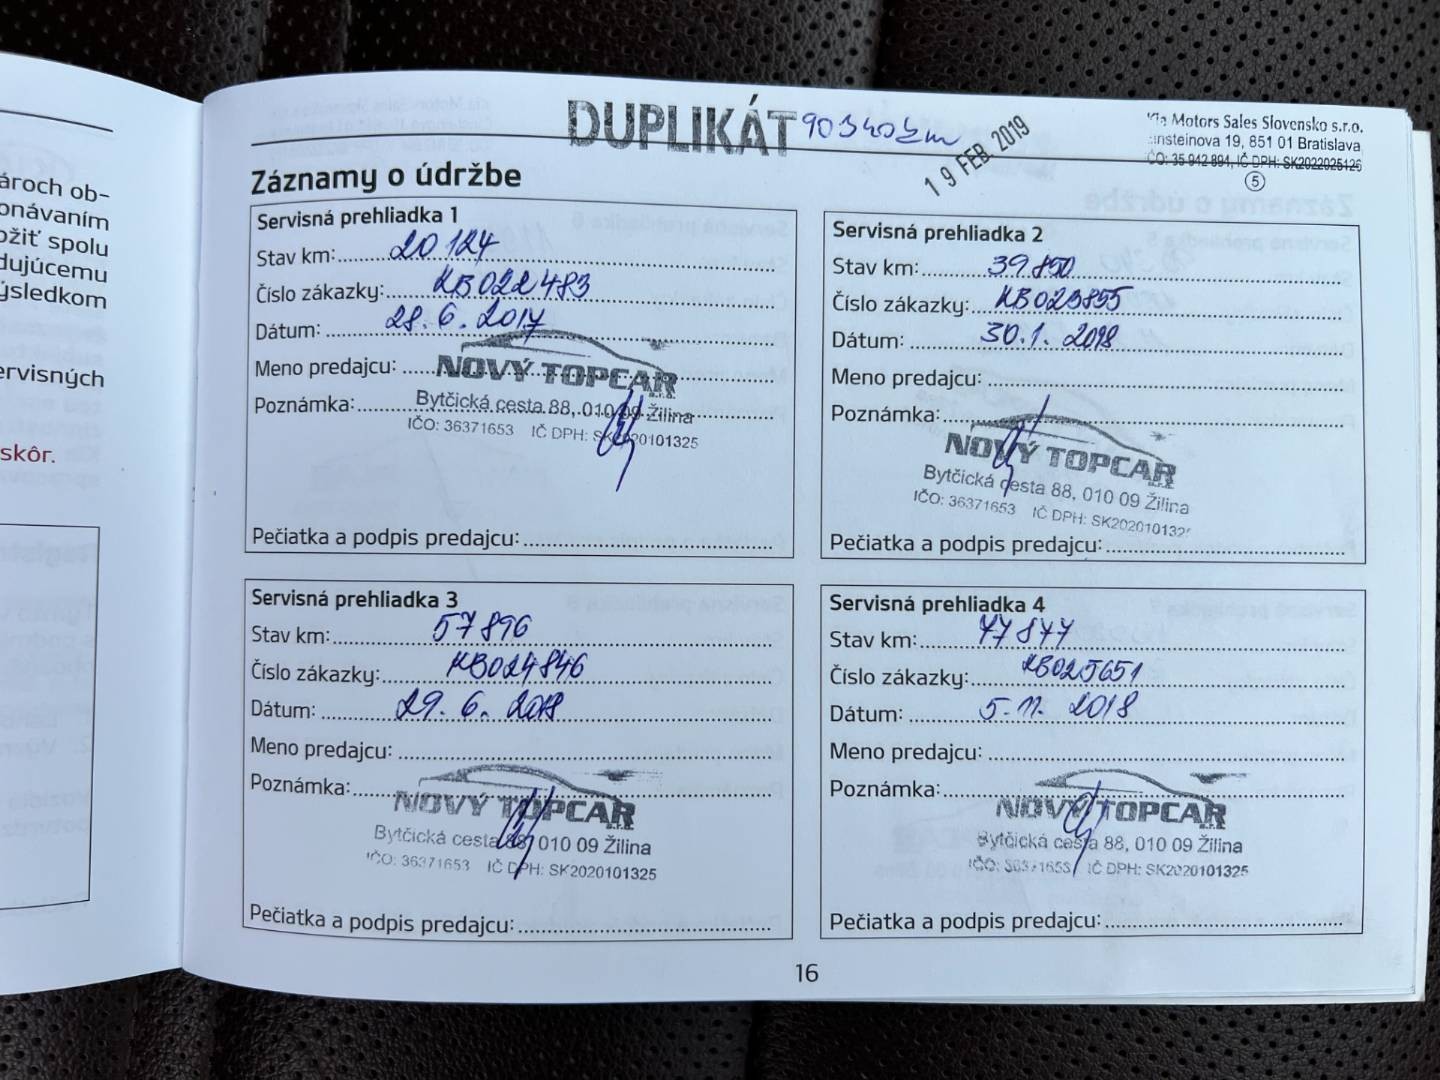 ároch ob-
onávaním
ožiť spolu
dujúcemu
ýsledkom
ervisných
skôr.
DUPLIKÁT 90340 km
19 FEB. 2019
Kia Motors Sales Slovensko s.r.o.
Einsteinova 19, 851 01 Bratislava
IČO: 35 942 894, IČ DPH: SK2022025126
5
Záznamy o údržbe
Servisná prehliadka 1
Stav km: 20 124
Číslo zákazky: KB022483
Dátum: 28. 6. 2017
Meno predajcu:
NOVÝ TOPCAR s.r.o.
Poznámka:
Bytčická cesta 88, 010 09 Žilina
IČO: 36371653 IČ DPH: SK2020101325
Pečiatka a podpis predajcu:
Servisná prehliadka 2
Stav km: 39 850
Číslo zákazky: KB023855
Dátum: 30. 1. 2018
Meno predajcu:
Poznámka:
NOVÝ TOPCAR s.r.o.
Bytčická cesta 88, 010 09 Žilina
IČO: 36371653 IČ DPH: SK202010132
Pečiatka a podpis predajcu:
Servisná prehliadka 3
Stav km: 57 896
Číslo zákazky: KB024846
Dátum: 29. 6. 2018
Meno predajcu:
Poznámka:
NOVÝ TOPCAR s.r.o.
Bytčická cesta 88, 010 09 Žilina
IČO: 36371653 IČ DPH: SK2020101325
Pečiatka a podpis predajcu:
Servisná prehliadka 4
Stav km: 77 877
Číslo zákazky: KB025651
Dátum: 5. 11. 2018
Meno predajcu:
Poznámka:
NOVÝ TOPCAR s.r.o.
Bytčická cesta 88, 010 09 Žilina
IČO: 36371653 IČ DPH: SK2020101325
Pečiatka a podpis predajcu:
16